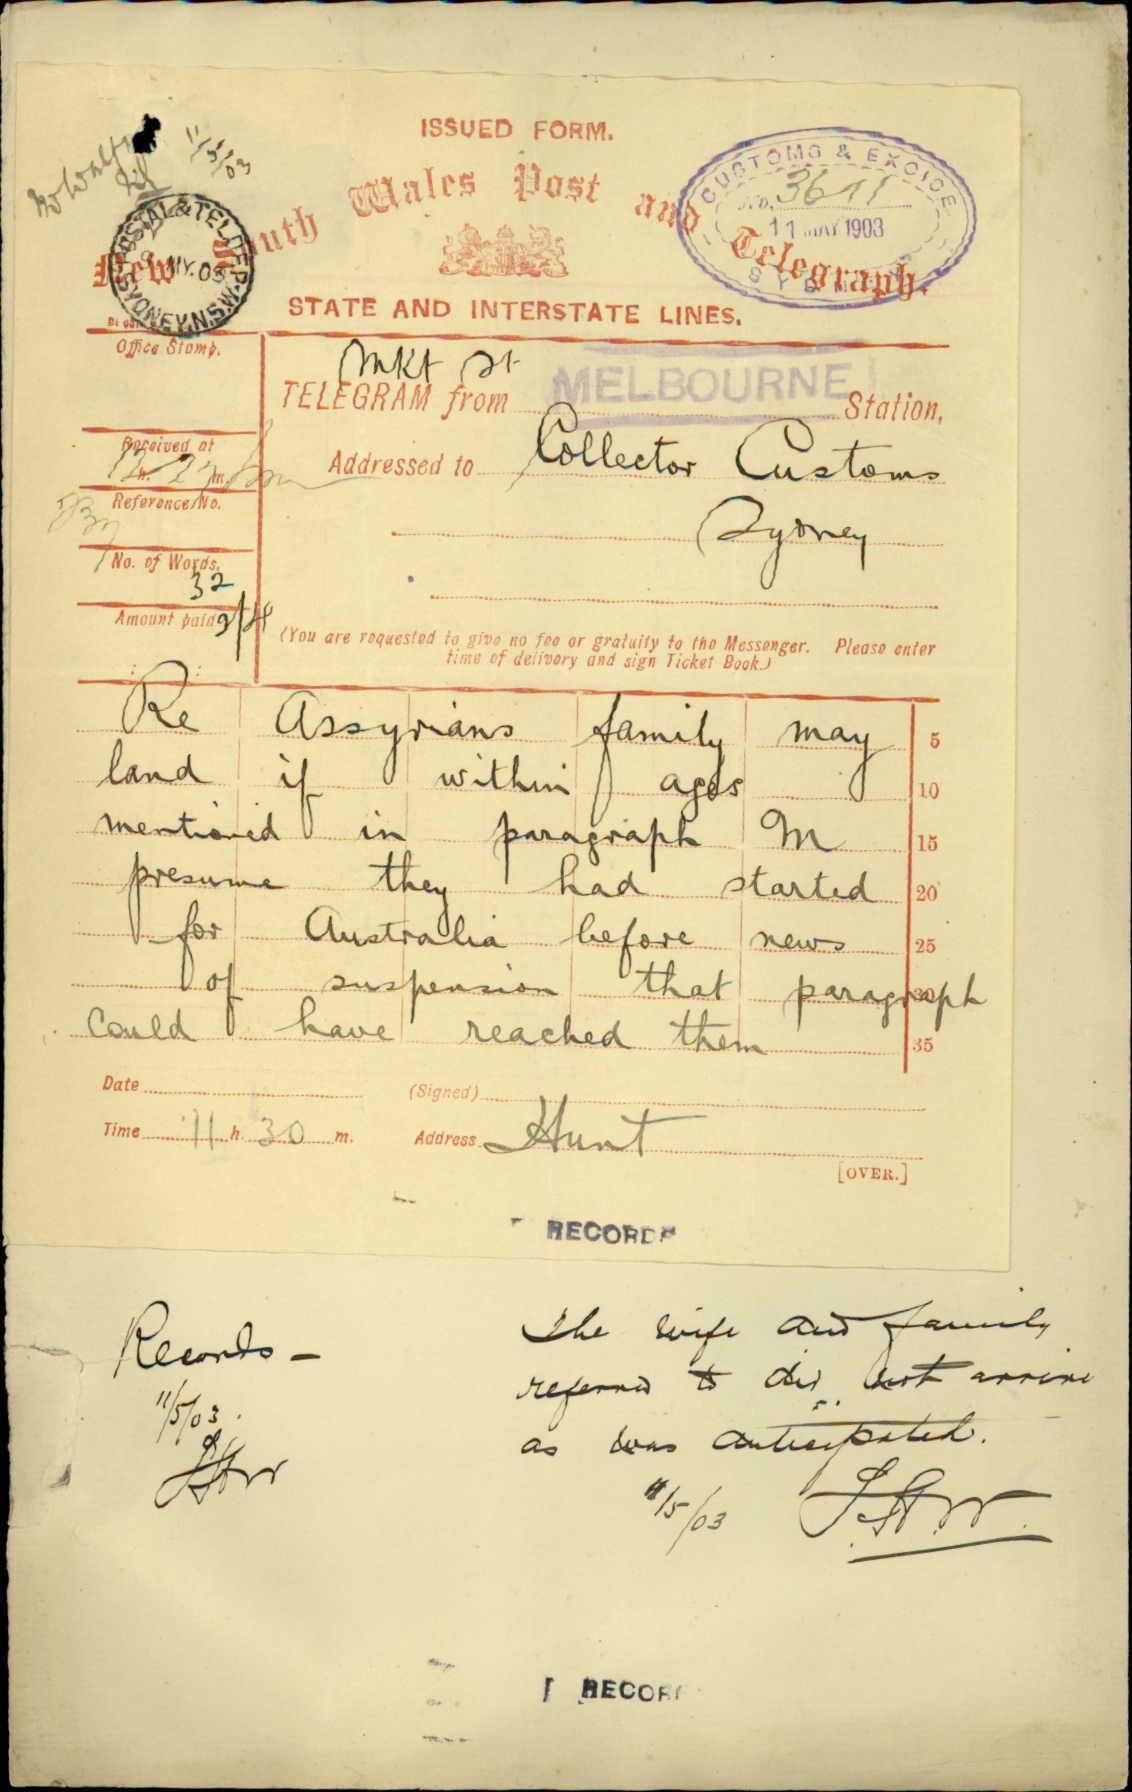 11/5/03
ISSUED FORM.
New South Wales Post and Telegraph.
CUSTOMS & EXCISE
No. 3611
11 MAY 1903
SYDNEY
POSTAL & TEL. DEP.
MY. 03
SYDNEY.N.S.W.
STATE AND INTERSTATE LINES.
Office Stamp.
Mkt St
TELEGRAM from MELBOURNE Station,
Received at
Addressed to Collector Customs
Reference No.
Sydney
No. of Words.
32
Amount paid
(You are requested to give no fee or gratuity to the Messenger. Please enter
time of delivery and sign Ticket Book.)
Re Assyrians family may 5
land if within ages 10
mentioned in paragraph M 15
presume they had started 20
for Australia before news 25
of suspension that paragraph 30
could have reached them 35
Date
(Signed)
Time 11 h. 30 m.
Address Hunt
[OVER.]
RECORDS
Records -
11/5/03.
The wife and family
referred to did not arrive
as was anticipated.
11/5/03
RECOR